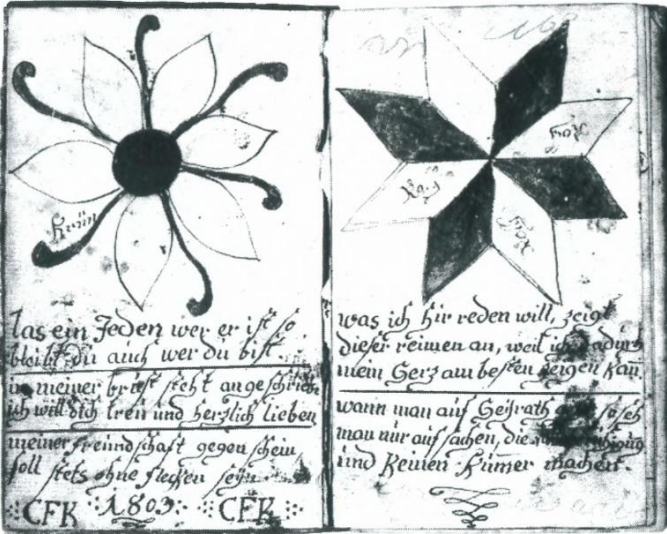 Grün
las ein Jeden wer er ist so
bleibst du auch wer du bist
in meiner brust steht angeschrieben
ich will dich treu und herzlich lieben
meiner freundschaft gegen schein
soll stets ohne flecken seyn
CFK 1803 CFK
was ich hir reden will, zeigt
dieser reimen an, weil ich dadurch
mein Herz am besten zeigen kan
wann man auf Heÿrath so seh
man nur auf sachen, die
und keinen kumer machen